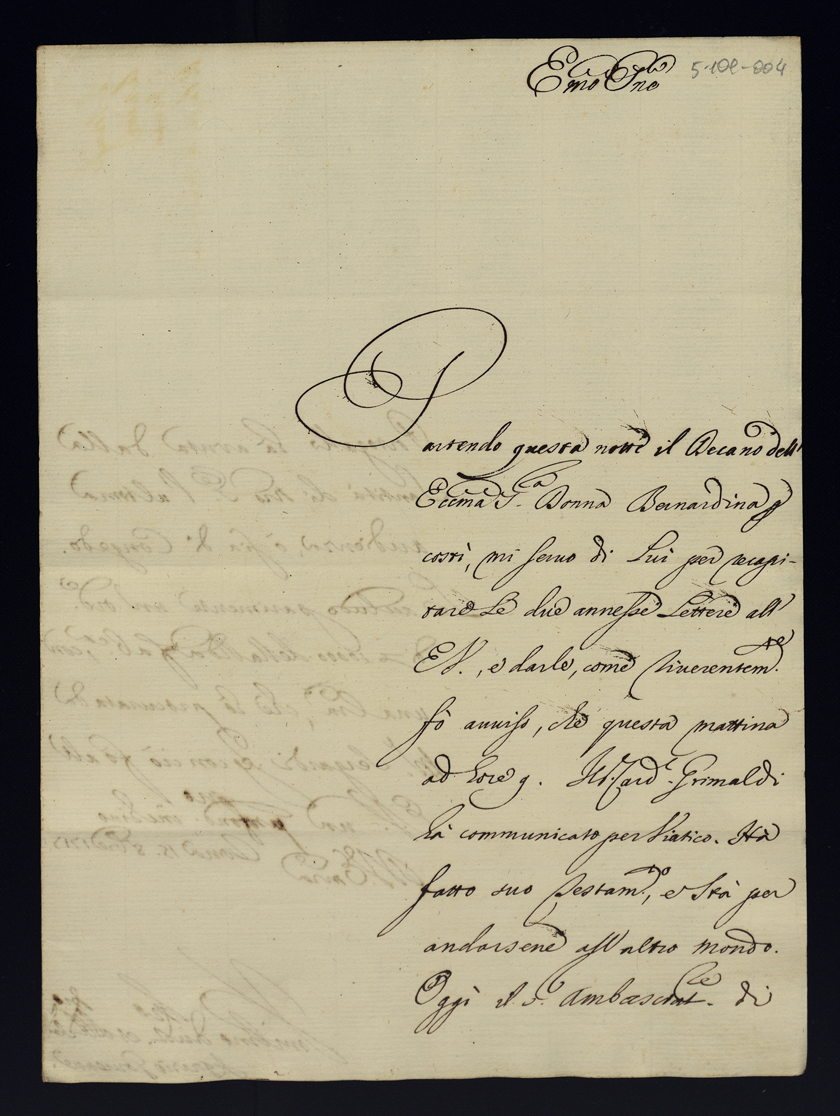 Emo Sne 5-101-004
Partendo questa notte il Decano dell'
Eccma Sra Donna Bernardina p
costì, mi servo di Lui per recapi-
tare Le due annesse Lettere all'
EV., e darle, come riverentemte
fò avviso, che questa mattina
ad hore 9. Il Sr Cardl Grimaldi
hà communicato per Viatico. Hà
fatto suo Testamto, e stà per
andarsene all'altro mondo.
Oggi il Sr Ambasciatre di